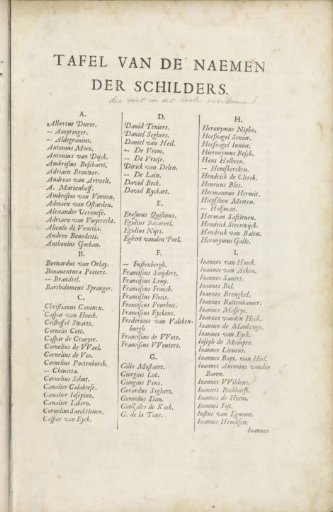 TAFEL VAN DE NAEMEN
DER SCHILDERS.
die niet in dit boek
A.
Albertus Durer.
Aldegravius.
Antonio Moro,
Antonius van Dijck.
Ambrosius Bosschaert.
Adriaen Brouwer.
Andreas van Artvelt.
Ambrosius van Vianen.
Adriaen van Ostaeden.
Alexander Veronese.
Adriaen van Nuytrecht.
Aliento di Venetia.
Andrea Benedetti.
Anthonius Goebau.
B.
Bernardus van Orlay.
Bonaventura Peeters.
— Brandel.
Bartholomeus Spranger.
C.
Christiaens Couinen.
Caspar van Hoeck.
Cristoffel Stuarts.
Cornelis Cett.
Caspar de Craeyer.
Cornelius de Wael.
Cornelius de Vos.
Cornelius Poelenburch.
— Chimetta.
Cornelius Schut.
Cavalier Calabrese.
Cavalier Iosepino.
Cavalier Libero.
Cornelius Sachtleuen.
Caspar van Eyck.
D.
David Teniers.
Daniel Seghers.
Daniel van Heil.
— De Vrom.
— De Vraije.
Dirick van Delen.
— De Lain.
David Beck.
David Ryckart.
E.
Erasmus Quilinus.
Egidius Bacareel.
Egidius Nijts.
Egbert vander Poel.
F.
— Fuissenbergh.
Franciscus Snijders,
Franciscus Lauy.
Franciscus Franck.
Franciscus Floris,
Franciscus Pourbus.
Franciscus Eyckens.
Frederieus van Valcken-
burgh.
Franciscus de Vete.
Franciscus Wouters.
G.
Gilis Mostaert.
Giorgius Lot.
Georgius Pens.
Gerardus Seghers.
Gerardus Dau.
Gonzales de Kock.
G. de la Tour.
H.
Heronymus Nipho,
Hoefnagel Senior.
Hoefnagel Junior.
Heronymus Bosch.
Hans Holbeen.
— Hemskercken.
Hendrick de Clerck.
Henricus Bles.
Hermannus Hermit.
— Holman.
Herman Saftleuen.
Hendrick Steenwyck.
Hendrick van Balen.
Heronymus Galle.
I.
Ioannes van Hoeck.
Ioannes van Acken.
Ioannes Bol.
Ioannes Breughel.
Ioannes Rottenhamer.
Ioannes Masseys.
Ioannes vanden Hecke.
Ioannes de Maubenge.
Ioannes van Eyck.
Ioseph de Momper.
Ioannes Lieuens.
Ioannes Bapt. van Hiel.
Ioannes Antonius vander
Baren.
Ioannes Wildens.
Ioannes Bockhorst.
Ioannes de Heem.
Ioannes Fijt.
Iustus van Egmont.
Ioannes Hemissen.
Ioannes